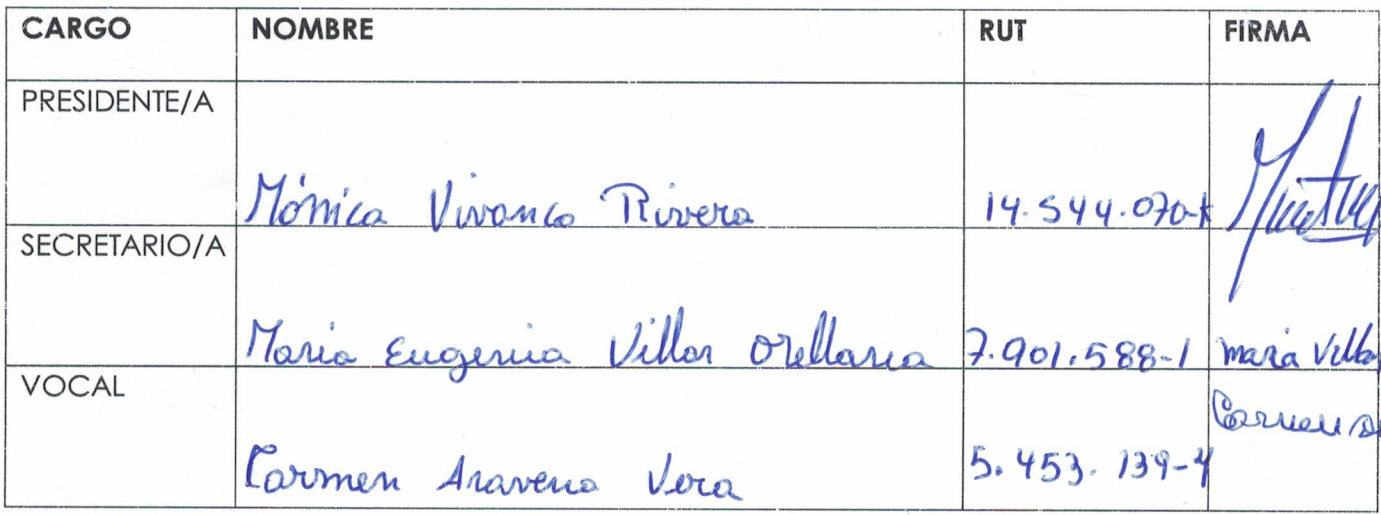 CARGO NOMBRE RUT FIRMA
PRESIDENTE/A
Mónica Vivanco Rivera 14.544.070-K
SECRETARIO/A
Maria Eugenia Villar Orellana 7.901.588-1 maria Villa
VOCAL
Carmen
Carmen Aravena Vera 5.453.139-4